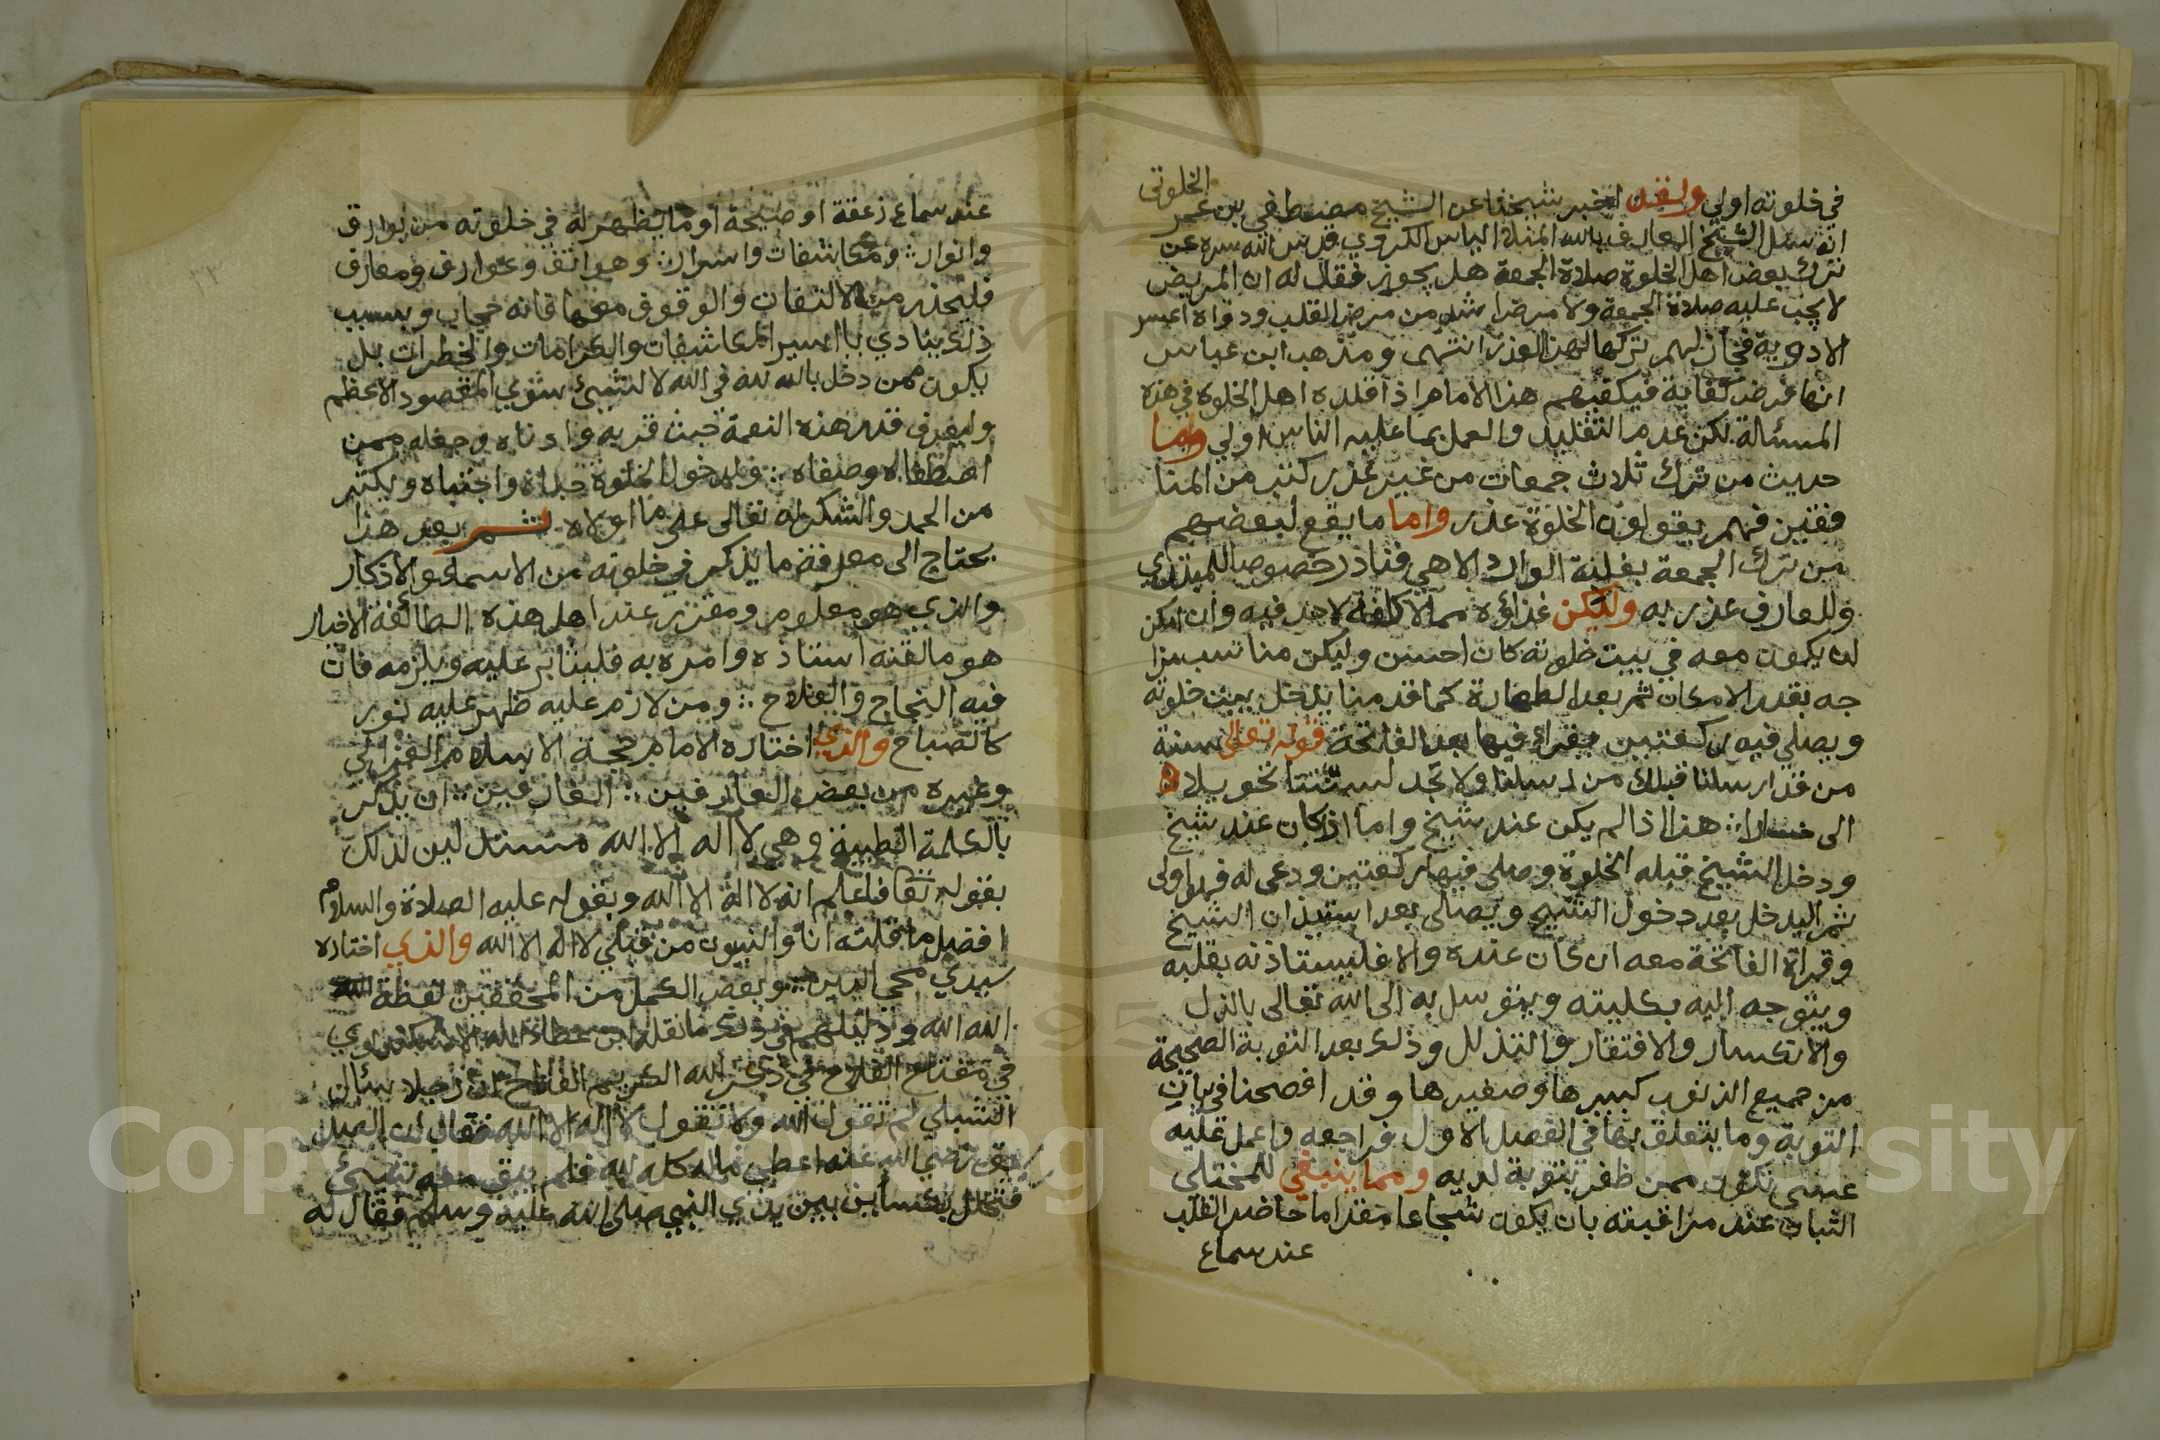 في خلوته اولي ولقد اخبر شيخنا عن الشيخ مصطفي بن عمر الخلوتي
انه سئل الشيخ العارف بالله المنلا الياس الكردي قدس الله سره عن
ترك بعض اهل الخلوة صلاة الجمعة هل يجوز فقال له ان المريض
لا يجب عليه صلاة الجمعة ولا مرض اشد من مرض القلب ودواه اعسر
الادوية فيجاز لهم تركها لهذا العذر انتهى ومذهب ابن عباس
انها فرض كفاية فيكفيهم هذا الامام اذا قلده اهل الخلوة في هذه
المسئالة لكن عدم التقليد والعمل بما عليه الناس اولي واما
حديث من ترك ثلاث جمعات من غير عذر كتب من المنا
فقين فهم يقولون الخلوة عذر واما ما يقع لبعضهم
من ترك الجمعة بغلبة الوارد الاهي فنادر خصوصا للمبتدي
وللعارف عذر به ولكن غذاؤه مما لا كلفة لاحد فيه وان امكن
ان يكون معه في بيت خلوته كان احسن وليكن مناسب مزا
جه بقدر الامكان ثم بعد الطهارة كما قدمنا يدخل بيت خلوته
ويصلي فيه ركعتين يقراء فيها بعد الفاتحة قوله تعالى سنة
من قد ارسلنا قبلك من رسلنا ولا تجد لسنتنا تحويلا
الى هذا اذا لم يكن عند شيخ واما اذا كان عند شيخ
ودخل الشيخ قبله الخلوة وصلى فيها ركعتين ودعى له فهو اولى
ثم اليدخل بعد دخول الشيخ ويصلى بعد استيذان الشيخ
وقراة الفاتحة معه ان كان عنده والا فليستاذنه بقلبه
ويتوجه اليه بكليته ويتوسل به الى الله تعالى بالذل
والانكسار والافتقار والتذلل وذلك بعد التوبة الصحيحة
من جميع الذنوب كبيرها وصغيرها وقد افصحنا في بيان
التوبة وما يتعلق بها في الفصل الاول فراجعه واعمل عليه
عسى تكون ممن ظفر بتوبة لديه ومما ينبغي للمختلي
الثبات عند مراقبته بان يكون شجاعا مقداما حاضر القلب
عند سماع
عند سماع زعقة او صيحة او ما يظهر له في خلوته من بوارق
وانوار ومكاشفات واسرار وهواتف وعوارف ومعارف
فليحذر من الالتفات والوقوف معها فانه حجاب وبسبب
ذلك ينادي يا اسير المكاشفات والكرامات والخطرات بل
يكون ممن دخل بالله لله في الله لا لشيئ سوي المقصود الاعظم
وليعرف قدر هذه النعمة حيث قربه وادناه وجعله ممن
اصطفاه وصفاه ولدخول الخلوة هداه واجتباه ويكثير
من الحمد والشكر له تعالى على ما اولاه ثم بعد هذا
يحتاج الى معرفة ما يذكر في خلوته من الاسماء والاذكار
والذي هو معلوم ومقرر عند اهل هذه الطائفة الاخيار
هو ما لقنه استاذه وامره به فليثابر عليه ويلزمه فان
فيه النجاح والفلاح ومن لازم عليه ظهر عليه نور
كالصباح والذي اختاره الامام حجة الاسلام الغزالي
وغيره من بعض العارفين العارفين ان يذكر
بالكلمة الطيبة وهي لا اله الا الله مستدلين لذلك
بقوله تعا فاعلم انه لا اله الا الله وبقوله عليه الصلاة والسلام
افضل ما قلته انا والنبيون من قبلي لا اله الا الله والذي اختاره
سيدي محي الدين وبعض الكمل من المحققين لفظة الله
الله الله ودليلهم في ذلك ما نقله ابن عطاء الله الاسكندري
في مفتاح الفلاح في ذكر الله الكريم الفتاح ان رجلا سئال
الشبلي لم تقول الله ولا تقول لا اله الا الله فقال ان الصد
يق رضي الله عنه اعطي ماله كله لله فلم يبق معه شيئ
فتخلل بكساء بين يدي النبي صلى الله عليه وسلم فقال له